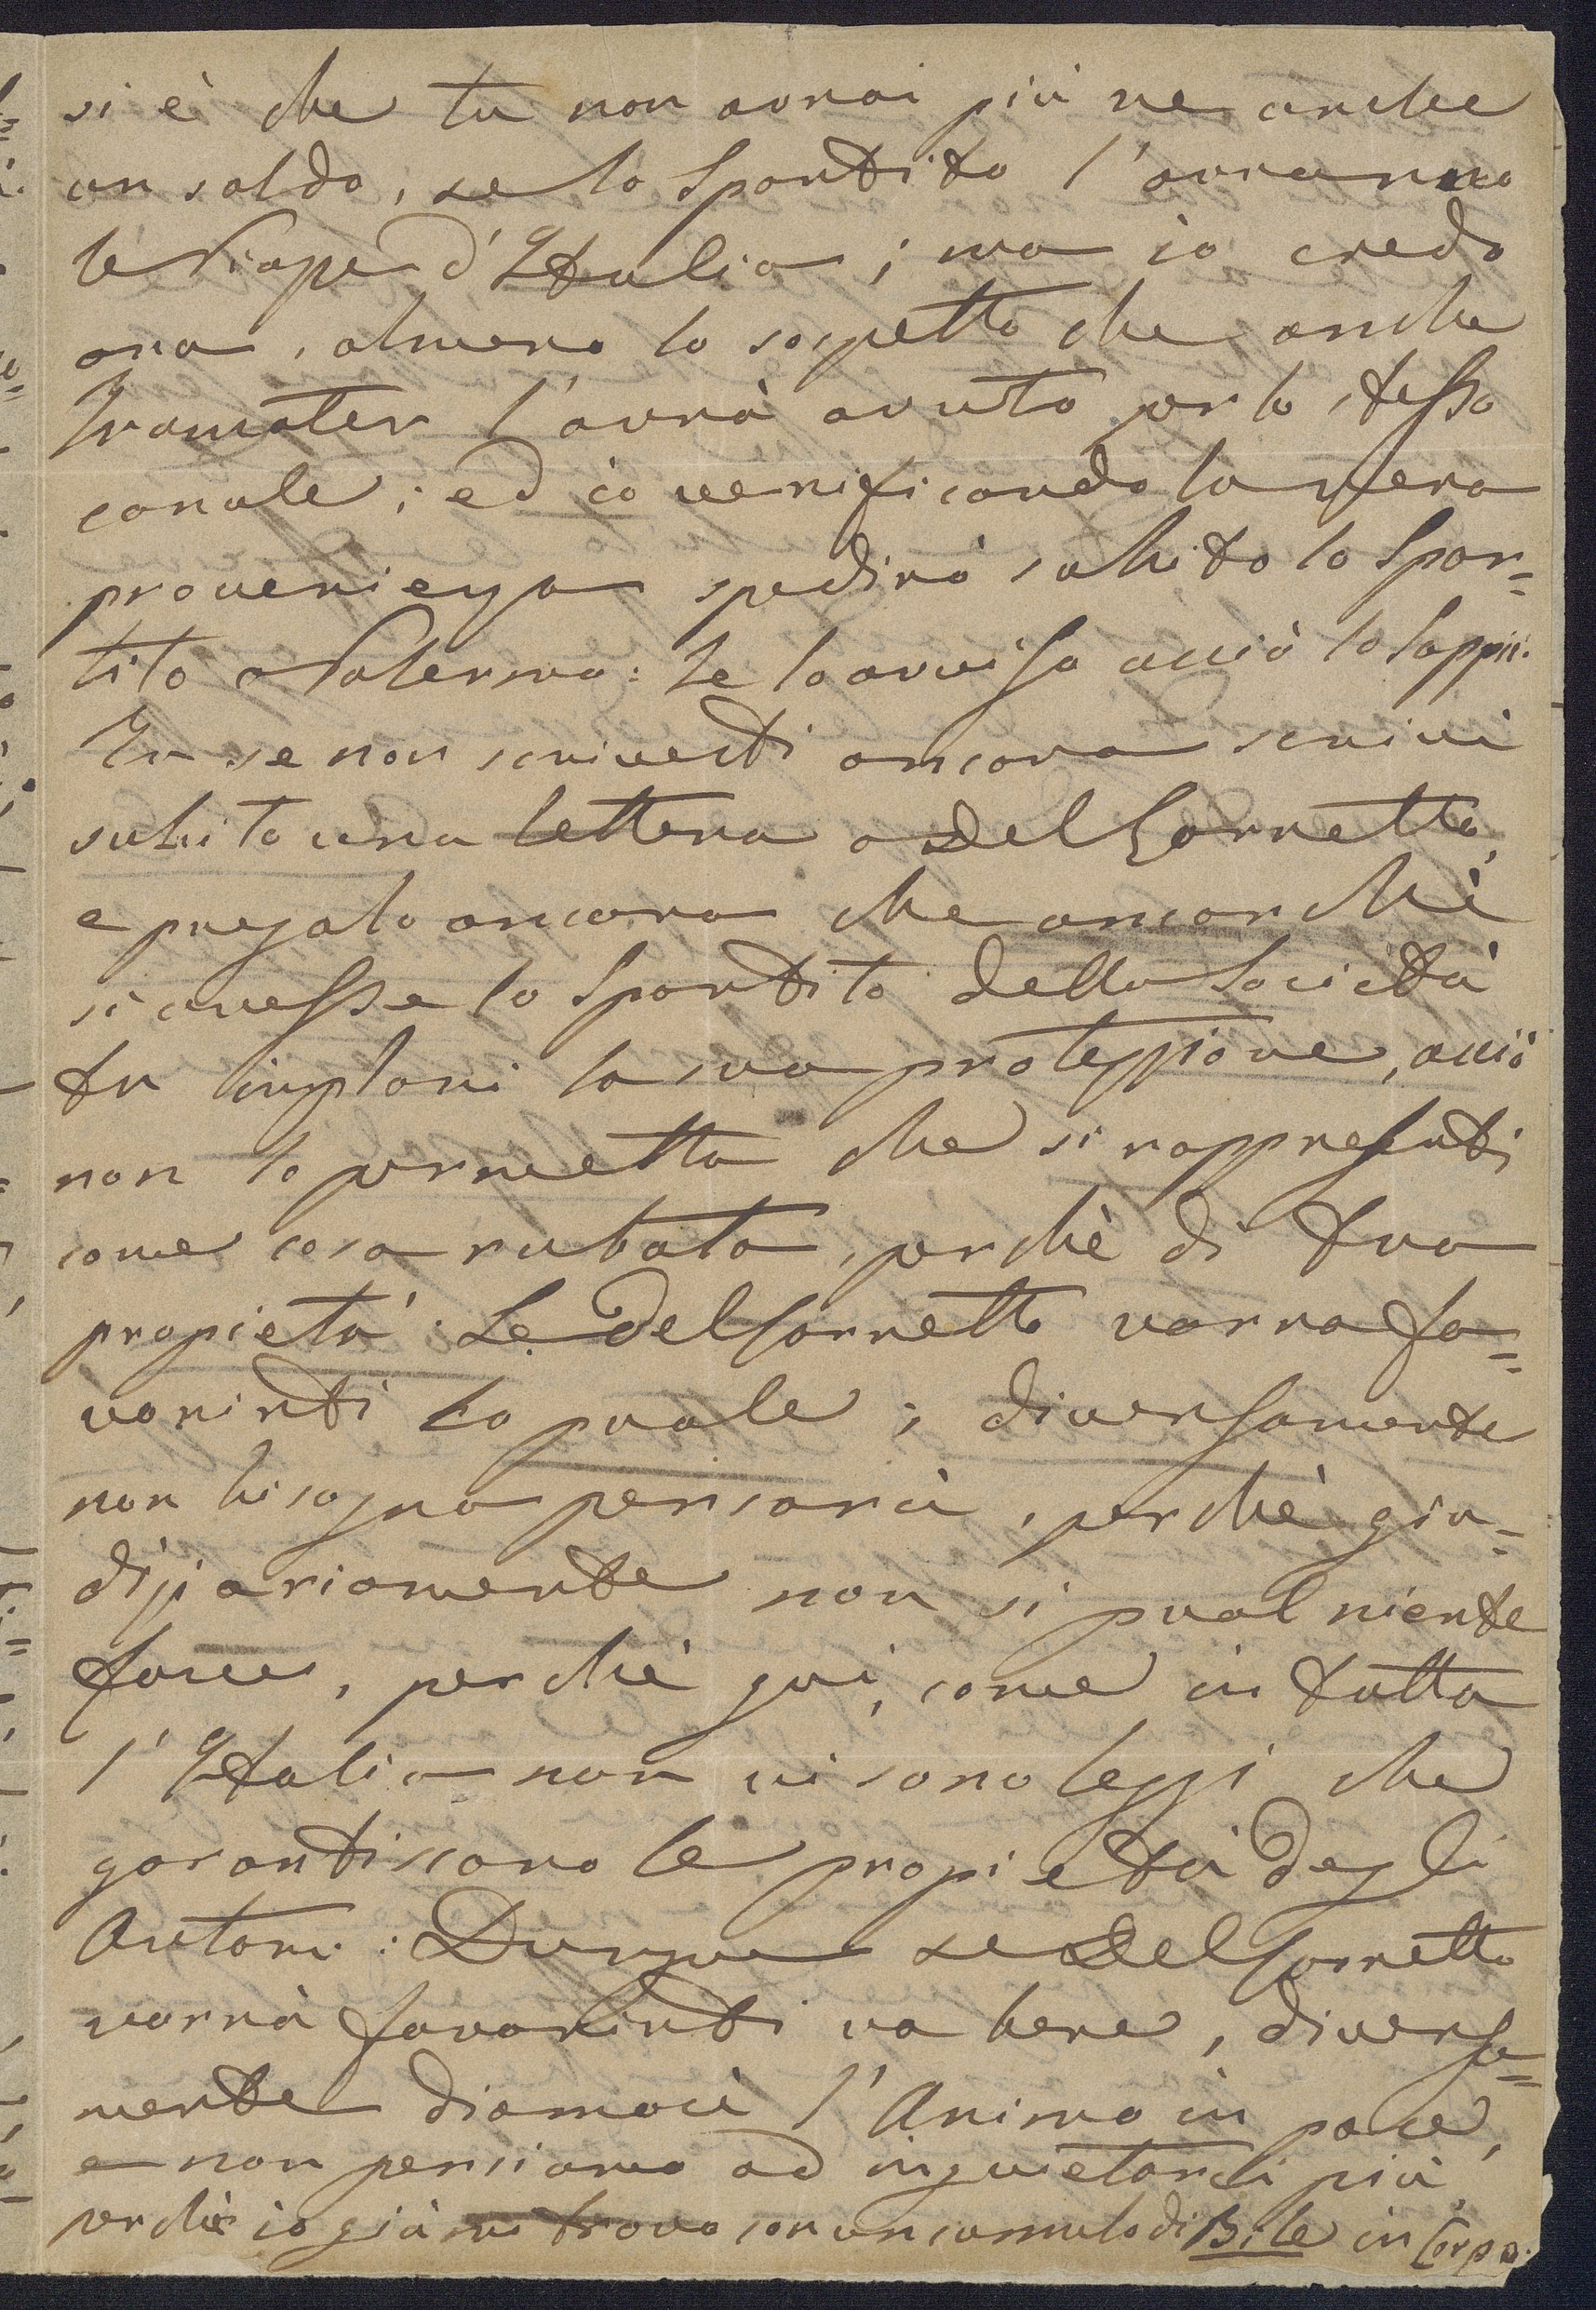 si è che tu non avrai più ne anche
un soldo, se lo Spartito l'avranno
le Piape d'Italia; ma io credo
ora, almeno lo sospetto che anche
Tramater l'avrà avuto per lo stesso
canale; ed io verificando la vera
provenienza spedirò subito lo Spar=
tito a Palermo: te lo avviso acciò lo sappii.
Tu se non scrivesti ancora scrivi
subito una lettera a Del Carretto,
e pregalo ancora che ancorchè
si avesse lo Spartito della Società
tu implori la sua protezzione, acciò
non lo permetta che si rappresenti
come cosa rubata, perchè di tua
propietà. Se Del Carretto vorrà fa=
vorirti lo puole; diversamente
non bisogna pensarci, perchè giu=
diziariamente non si puol niente
fare, perchè qui, come in tutta
l'Italia non vi sono leggi che
garantiscono le propietà degli
Autori: Dunque se Del Carretto
vorrà favorirti va bene, diversa=
mente diamoci l'Animo in pace,
e non pensiamo ad inquietarci più,
perchè io già mi trovo con un cumulo di Bile in Corpo.